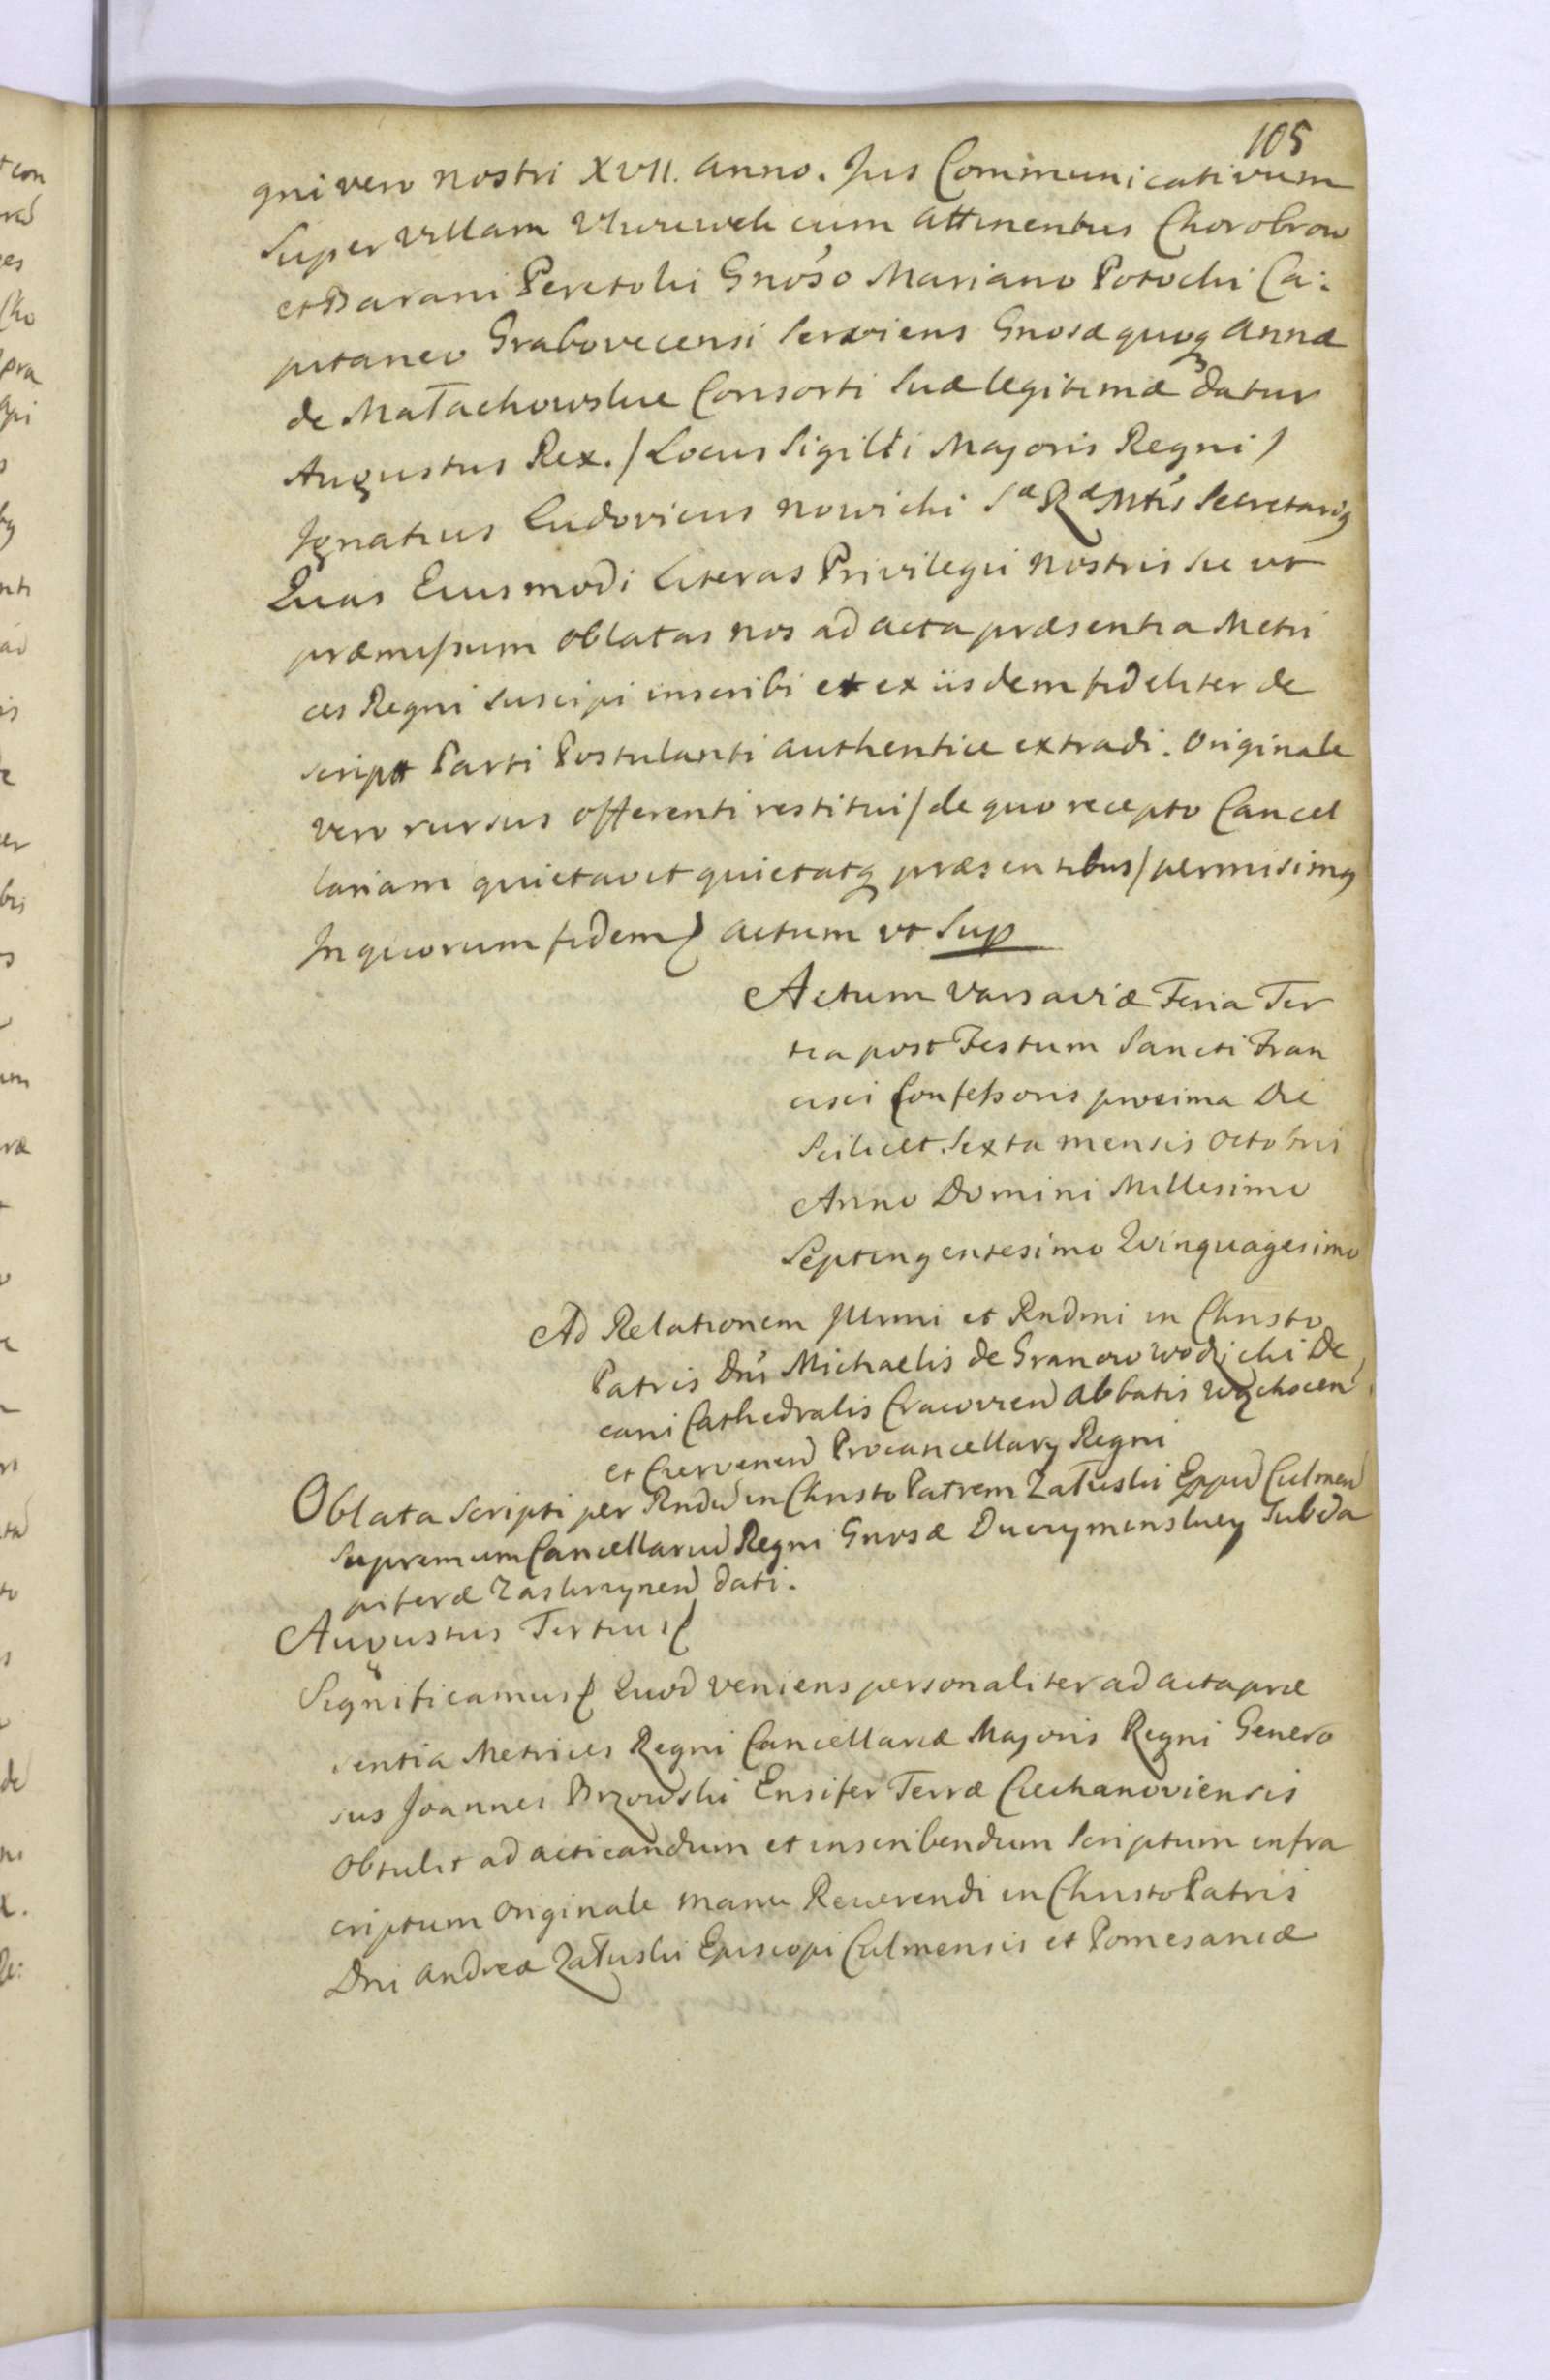 105
gni vero nostri XVII. anno. Jus Communicativum
Super Villam Uhrineveli cum attinentiis Chorobrow
et Barani Peretoki Gnoso Mariano Potocki Ca:
pitaneo Grabovecensi serviens Gnosæ quoq Annæ
de Małachowskie Consorti Suæ legitimæ datur
Augustus Rex. / Locus Sigilli Majoris Regni /
Ignatius Ludovicus Nowicki Sæ Ræ Mtis Secretarig
Quas Eiusmodi Literas Privilegii nostris sic ut
præmissum oblatas nos ad acta præsentia Metri
ces Regni suscipi inscribi et ex iisdem fideliter de
script Parti Postulanti authentice extradi. Originale
vero rursus offerenti restitui / de quo recepto Cancel
lariam quietavit quietatq præsentibus / permisimq
In quorum fidem Actum ut Sup
Actum Varsaviæ Feria Ter
tia post Festum Sancti Fran
cisci Confessoris proxima Die
Scilicet Sexta mensis Octobris
Anno Domini Millesimo
Septingentesimo Quinquagesimo
Ad Relationem Illmi et Rndmi in Christo
Patris Dni Michaelis de Granow Wodzicki De
cani Cathedralis Cracovien Abbatis Wąchocen
et Czervenen Procancellary Regni
Oblata Scripti per Rndu in Christo Patrem Załuski Eppu Culmen
Supremum Cancellariu Regni Gnosæ Duczymenskiey Subda
piferæ Zaskrzynen dati.
Augustus Tertius
Significamus Quod veniens personaliter ad acta præ
sentia Metrices Regni Cancellariæ Majoris Regni Genero
sus Joannes Brzowski Ensifer Terræ Ciechanoviensis
obtulit ad acticandum et inscribendum Scriptum infra
criptum originale manu Reverendi in Christo Patris
Dni Andreæ Załuski Episcopi Culmensis et Pomesaniæ